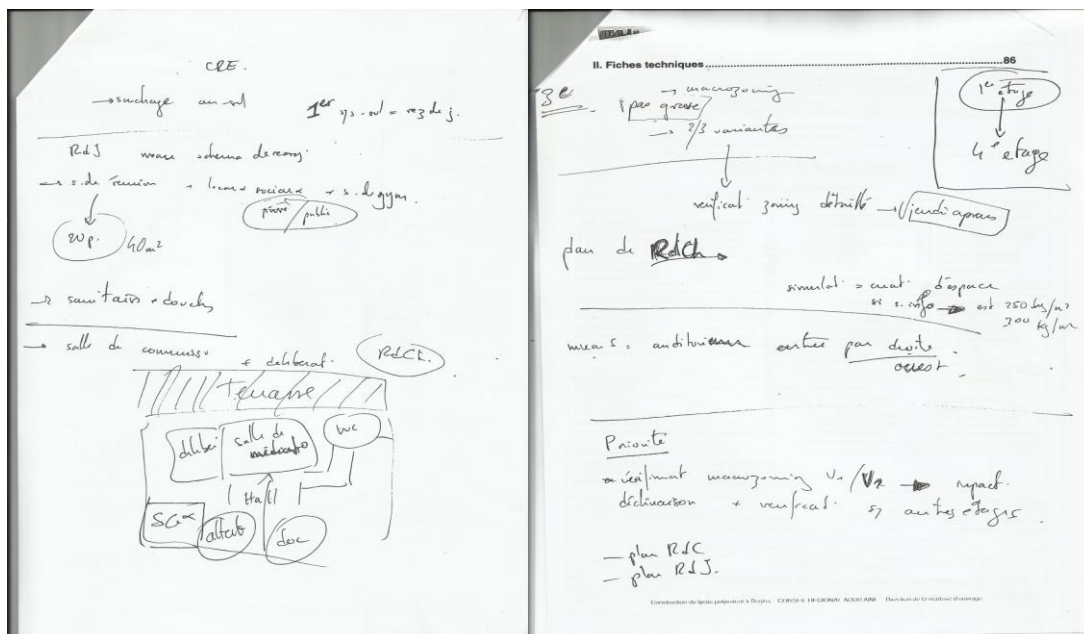 CRE.
→ au sol 1er s/s-sol = rez de j.
RdJ meme schema de
→ s. de réunion + locaux sociaux + s. de gym.
privé / public
20 p. 40 m²
→ sanitaires + douches
→ salle de + deliberat. RdCh.
Terrasse
deliber salle de WC
Hall
SG
doc
II. Fiches techniques 86
→ macrozoning
pas grave
→ 2/3 variantes
1er étage
4e etage
verificat zoning détaillé → jeudi aprem
plan de RdCh
simulat d'espace
si s. info → est 250 kg/m²
300 kg/m²
auditorium entrée par droite
ouest
Priorité
macrozoning V1/V2 →
déclinaison + verificat autres etages.
— plan RdC
— plan RdJ.
Construction du lycée polyvalent à Bègles CONSEIL REGIONAL AQUITAINE Direction de la maîtrise d'ouvrage